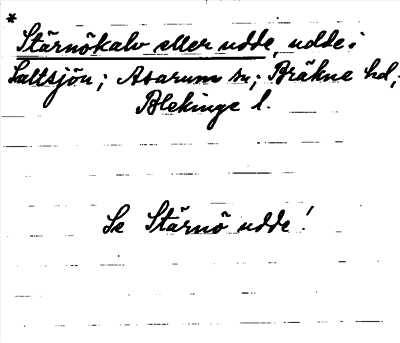 * Stärnökalv eller udde, udde i
Saltsjön; Asarums sn; Bräkne hd;
Blekinge l.
Se Stärnö udde!